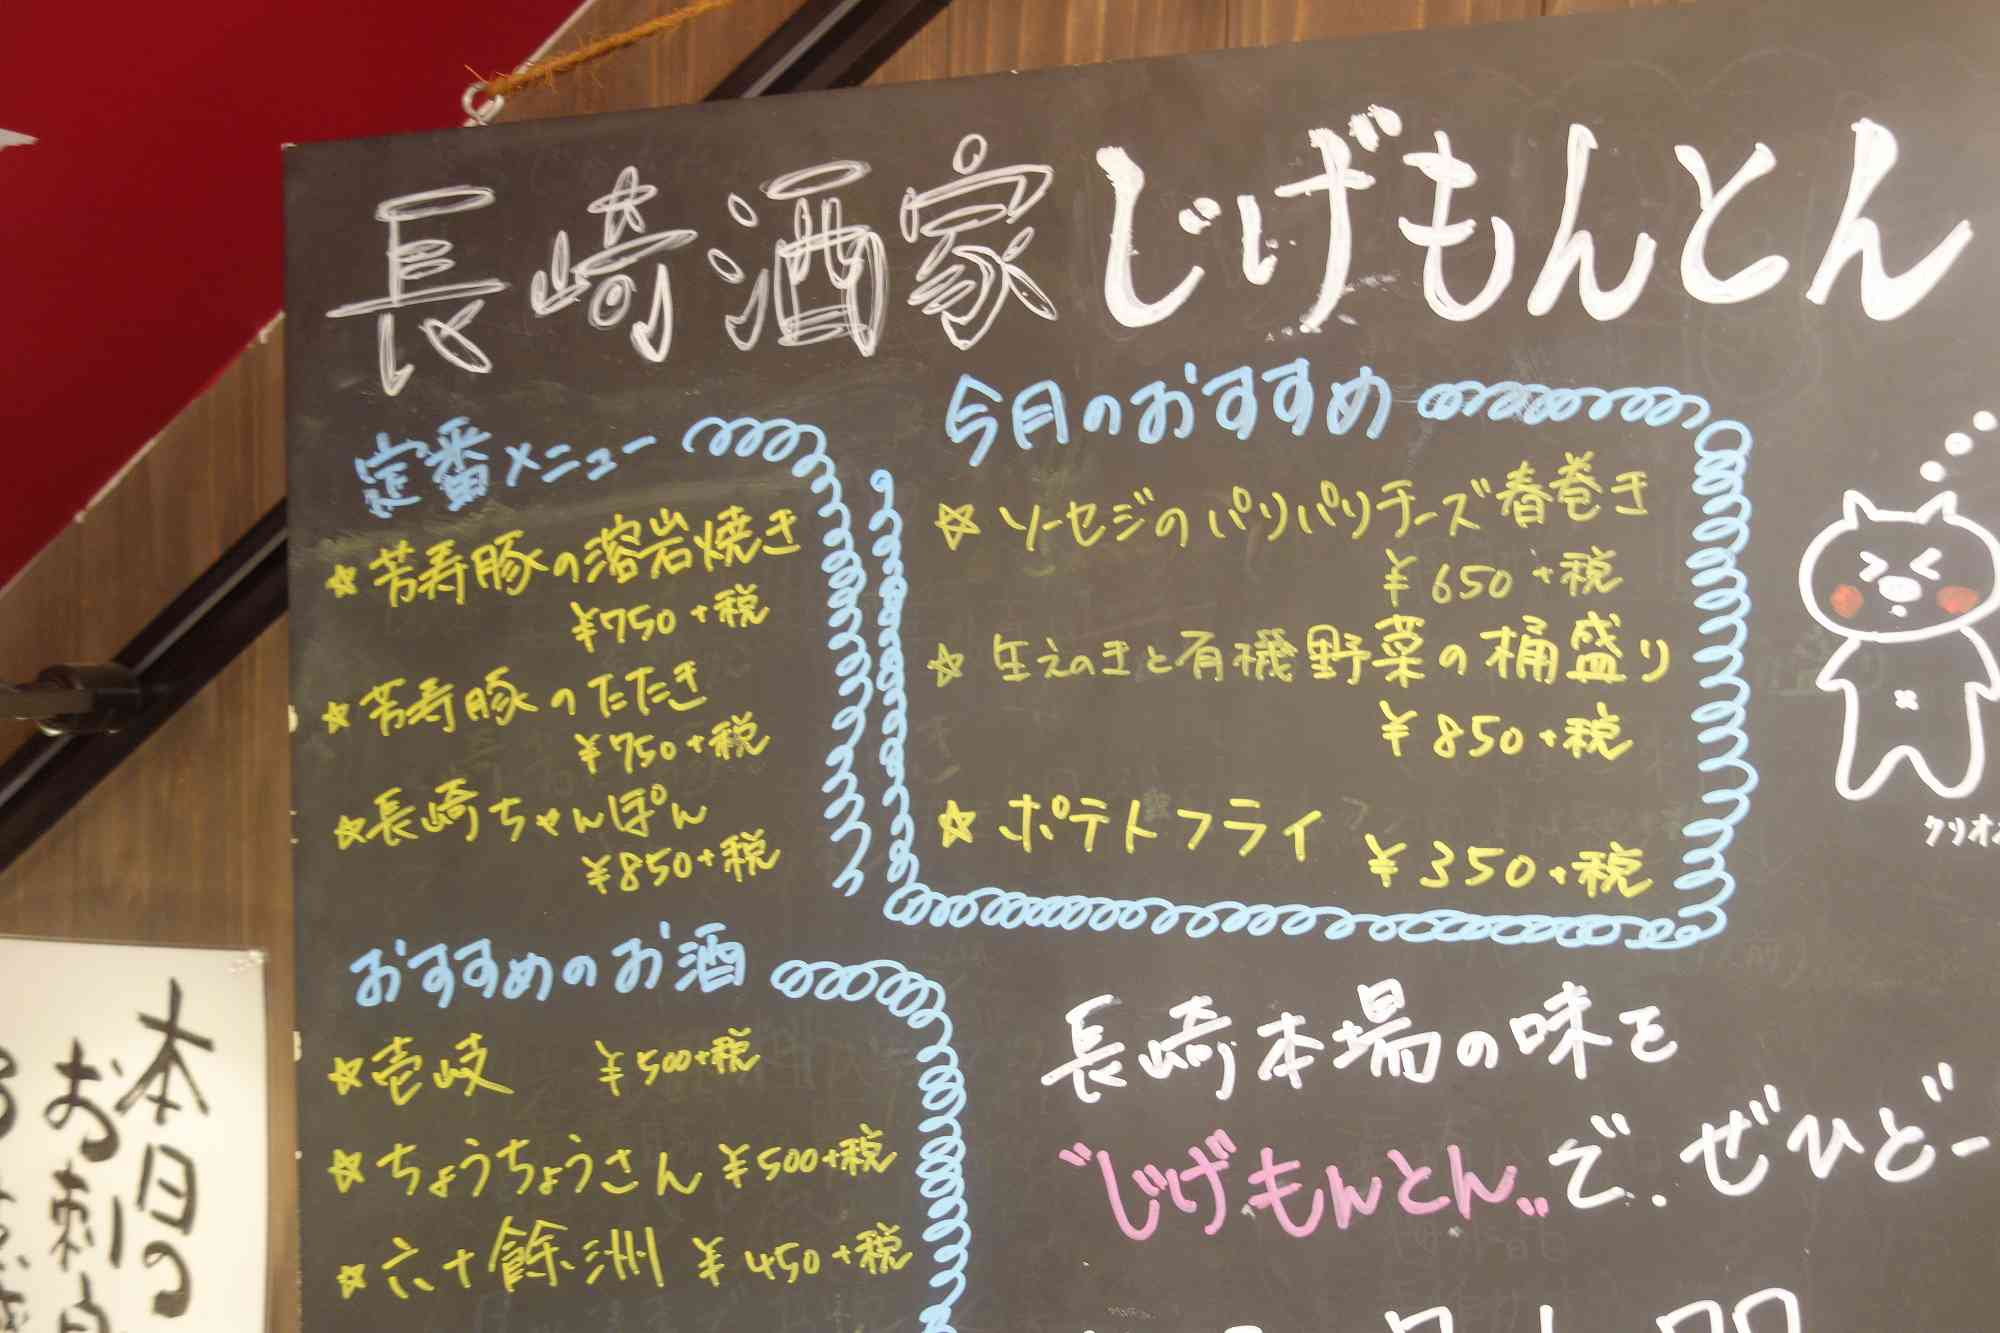 長崎酒家じげもんとん
定番メニュー
☆芳寿豚の溶岩焼き
¥750+税
☆芳寿豚のたたき
¥750+税
☆長崎ちゃんぽん
¥850+税
今月のおすすめ
☆ソーセジのパリパリチーズ春巻き
¥650+税
☆生えのきと有機野菜の桶盛り
¥850+税
☆ポテトフライ
¥350+税
クリオネ
おすすめのお酒
☆壱岐 ¥500+税
☆ちょうちょうさん ¥500+税
☆六十餘洲 ¥450+税
長崎本場の味を
"じげもんとん"で、ぜひどー
本日の
お刺身